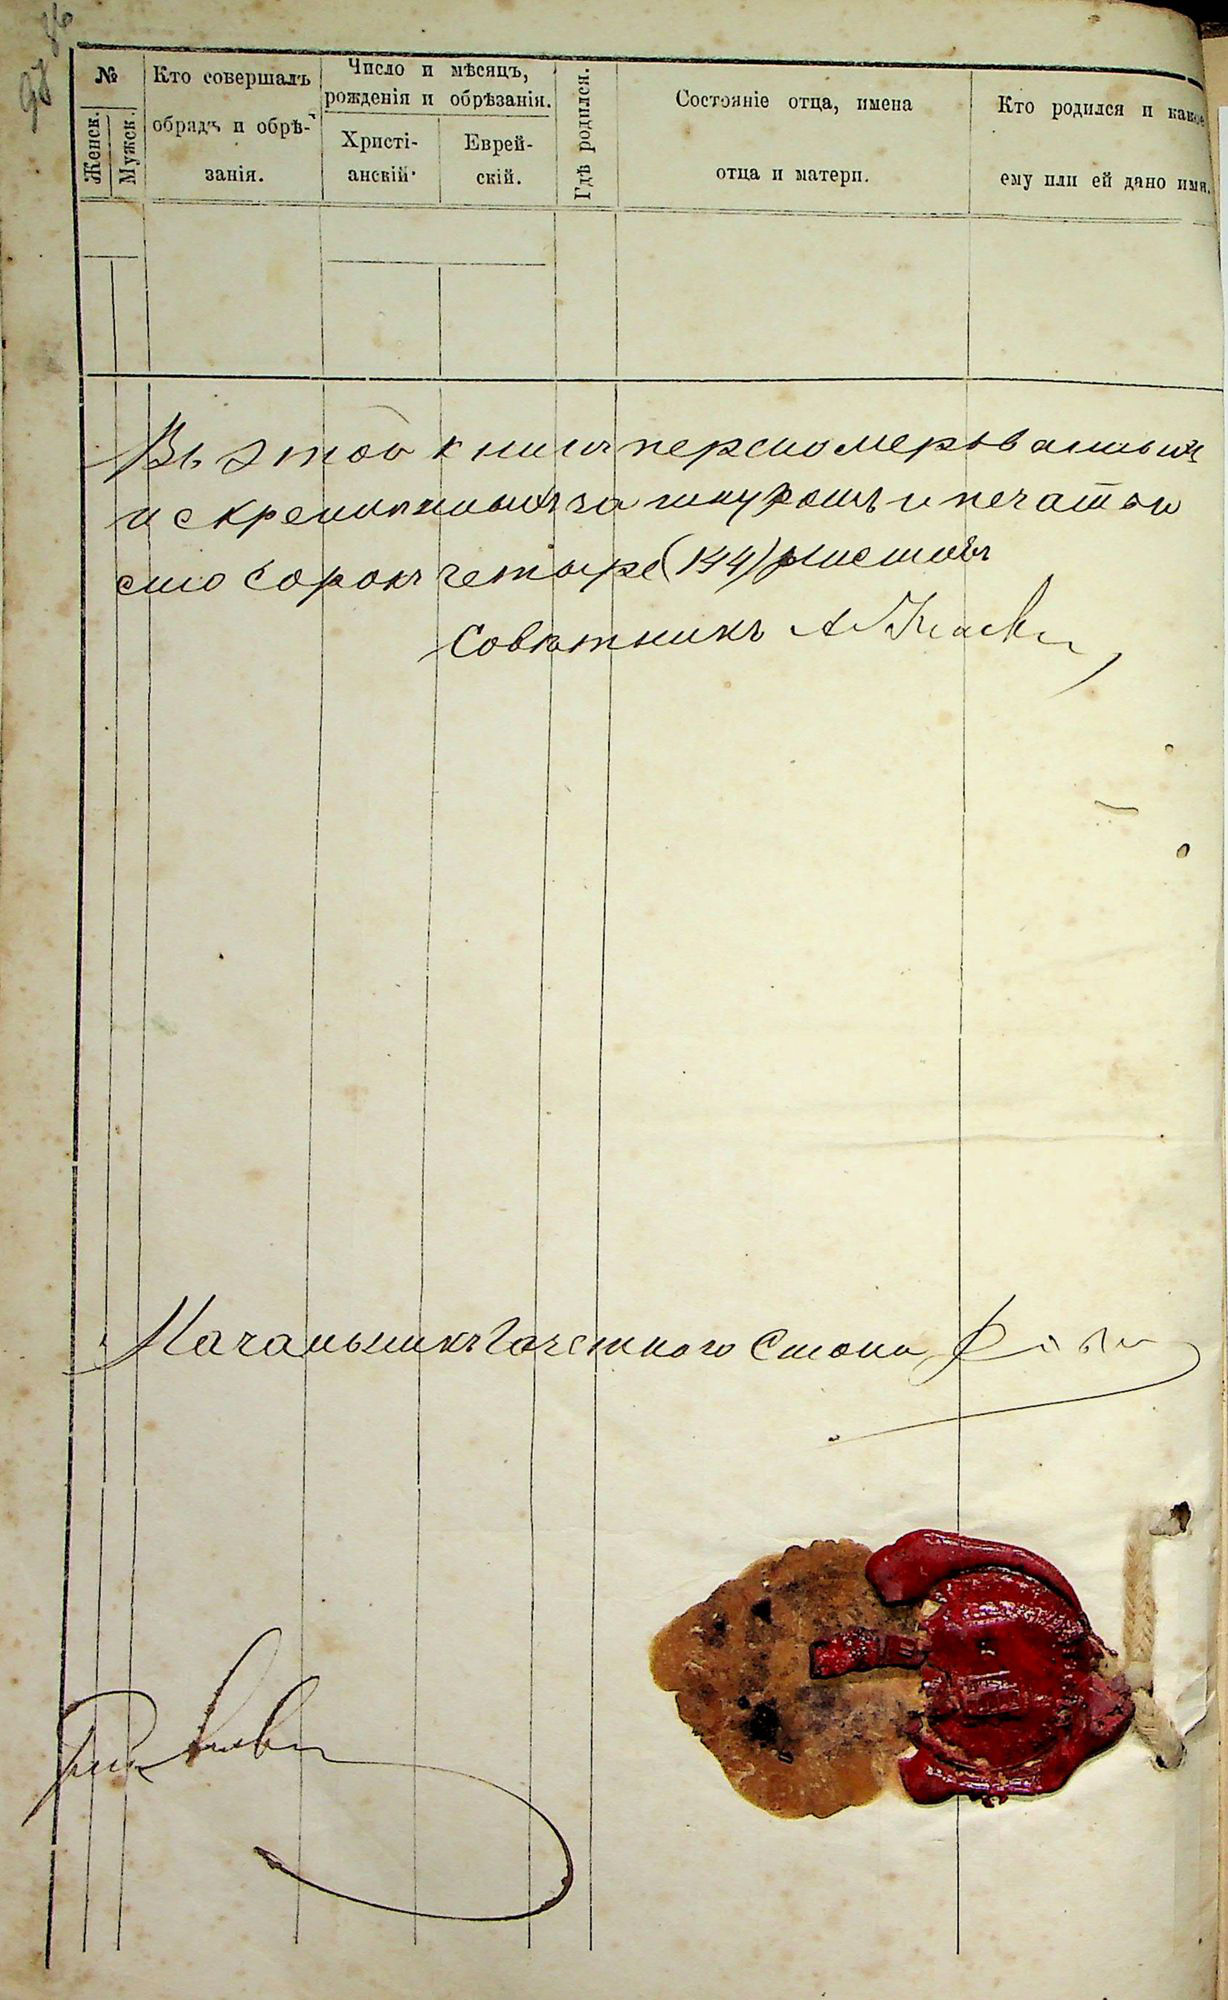 №
Женск.
Мужск.
Кто совершалъ
обрядъ и обрѣ-
занія.
Число и мѣсяцъ,
рожденія и обрѣзанія.
Христі-
анскій.
Еврей-
скій.
Гдѣ родился.
Состояніе отца, имена
отца и матери.
Кто родился и какое
ему или ей дано имя.
Въ этой книгѣ перенумерованныхъ
и скрепленныхъ за шнуромъ и печатью
сто сорокъ четыре (144) листовъ
Совѣтникъ
Начальникъ Счетного Стола